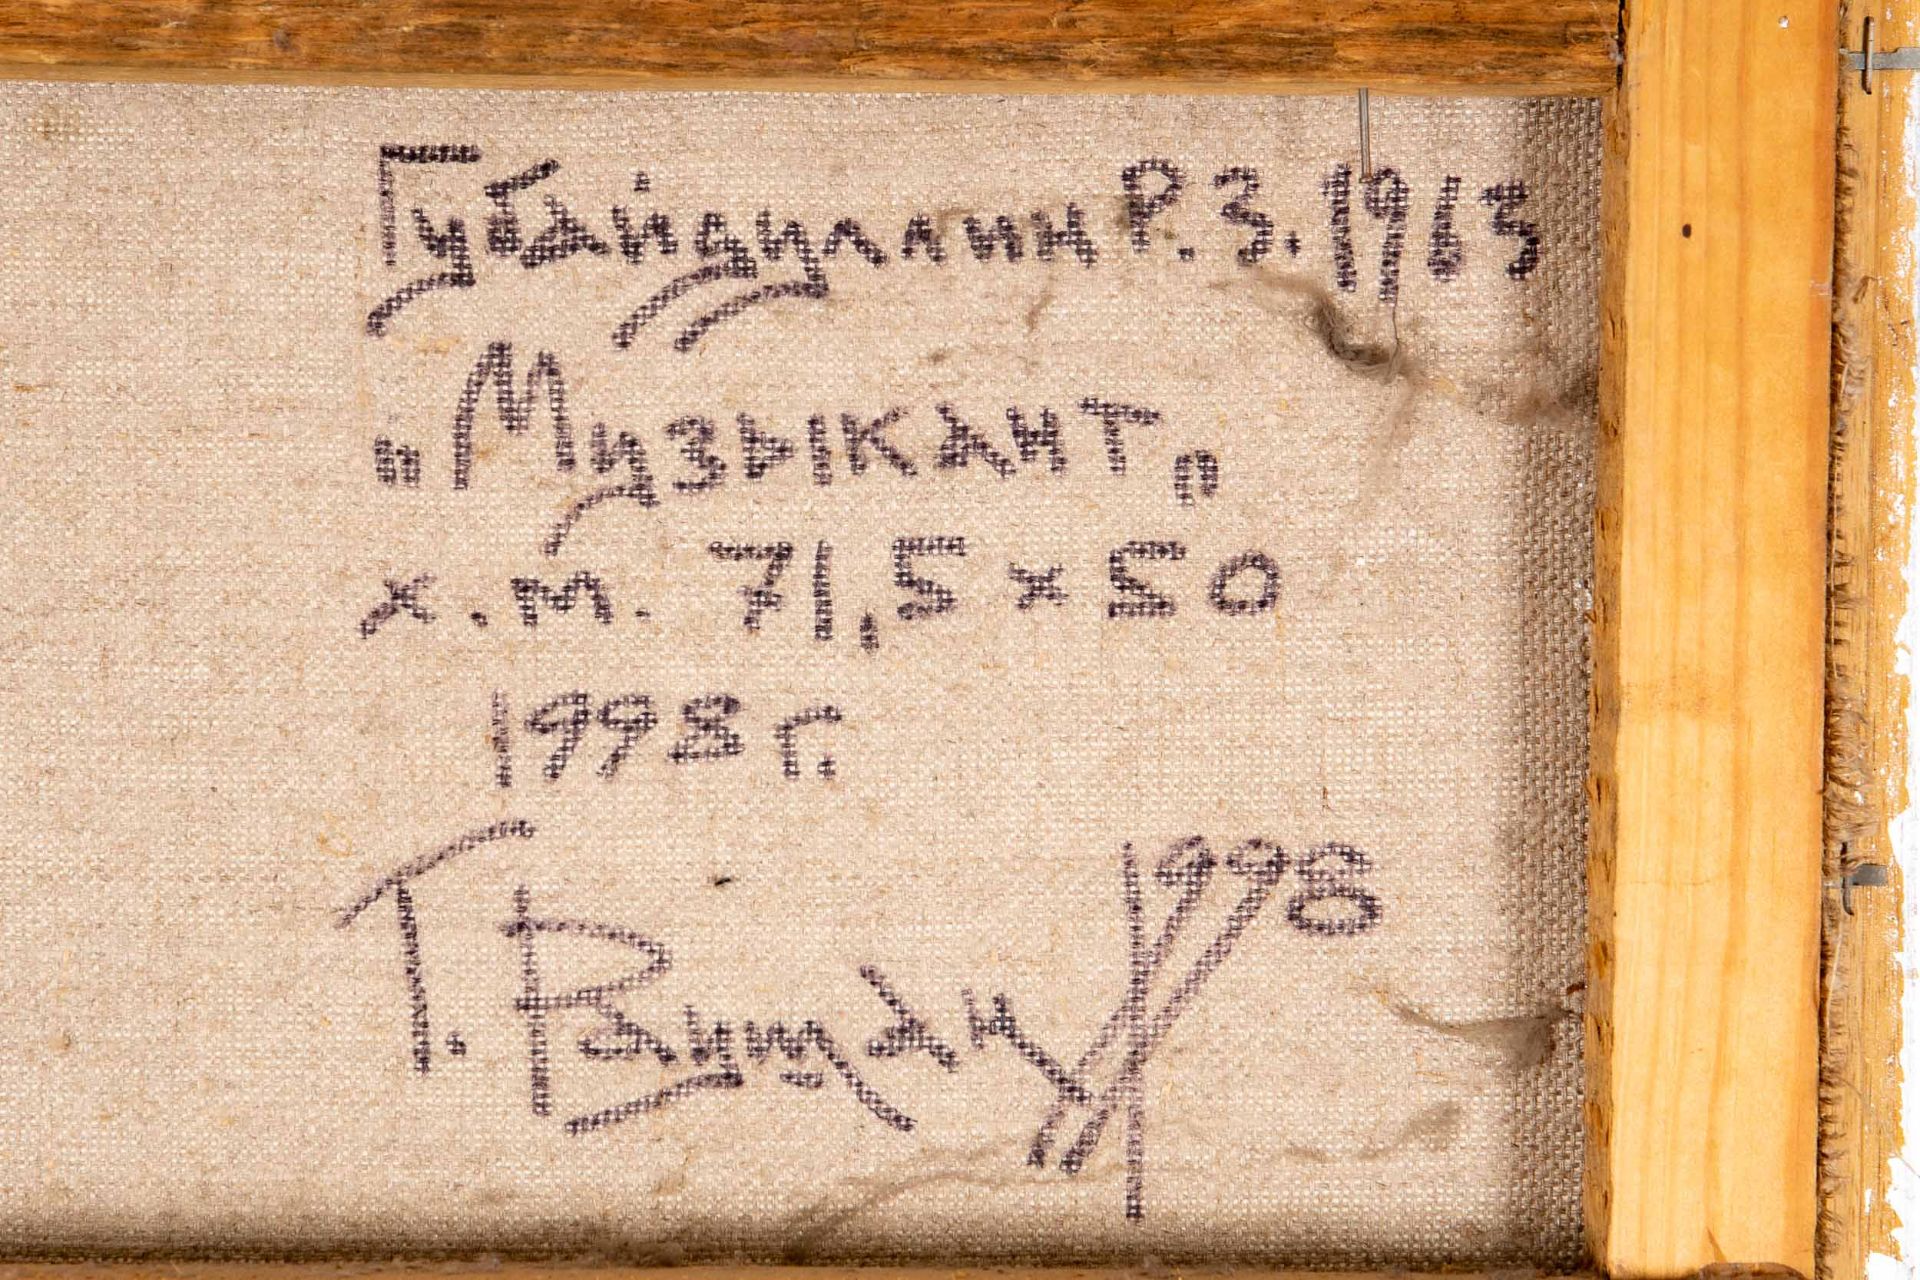 Губайдуллин Р.З. 1913
„Музыкант„
х.м. 71,5 x 50
1998 г.
1998